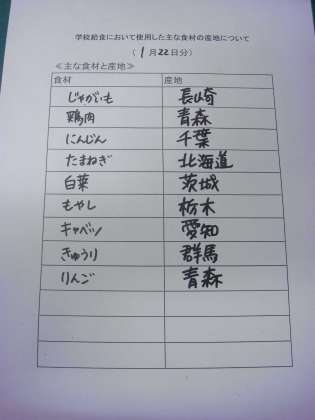 学校給食において使用した主な食材の産地について
（ 1 月 22 日分）
≪主な食材と産地≫
食材 産地
じゃがいも 長崎
鶏肉 青森
にんじん 千葉
たまねぎ 北海道
白菜 茨城
もやし 栃木
キャベツ 愛知
きゅうり 群馬
りんご 青森